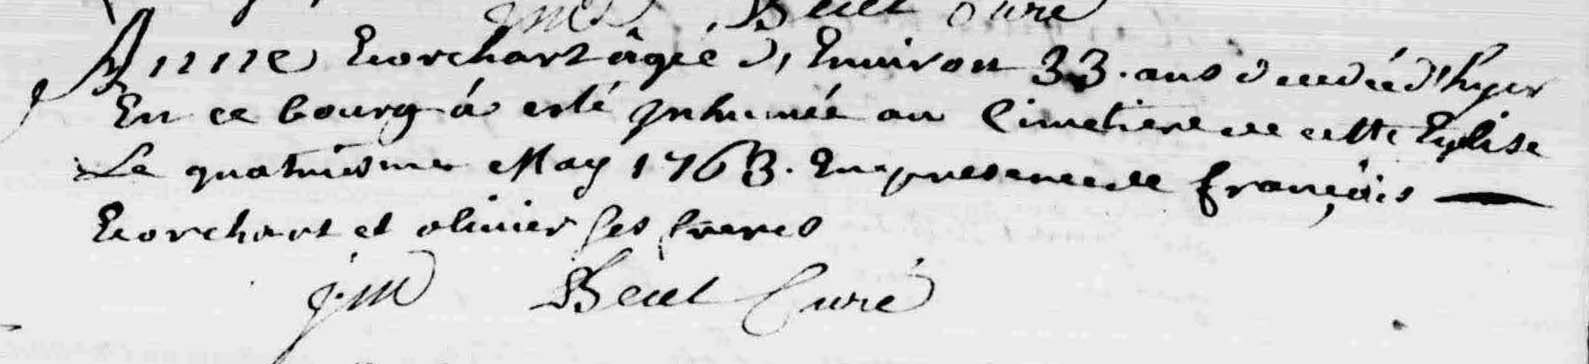 Curé
Anne Ecorchart âgée d'Environ 33. ans decedée d'hyer
En ce bourg á esté Inhumée au Cimetiere de cette Eglise
Le quatriesme May 1763. En presence de françois —
Ecorchart et olivier ses freres
j. m Curé